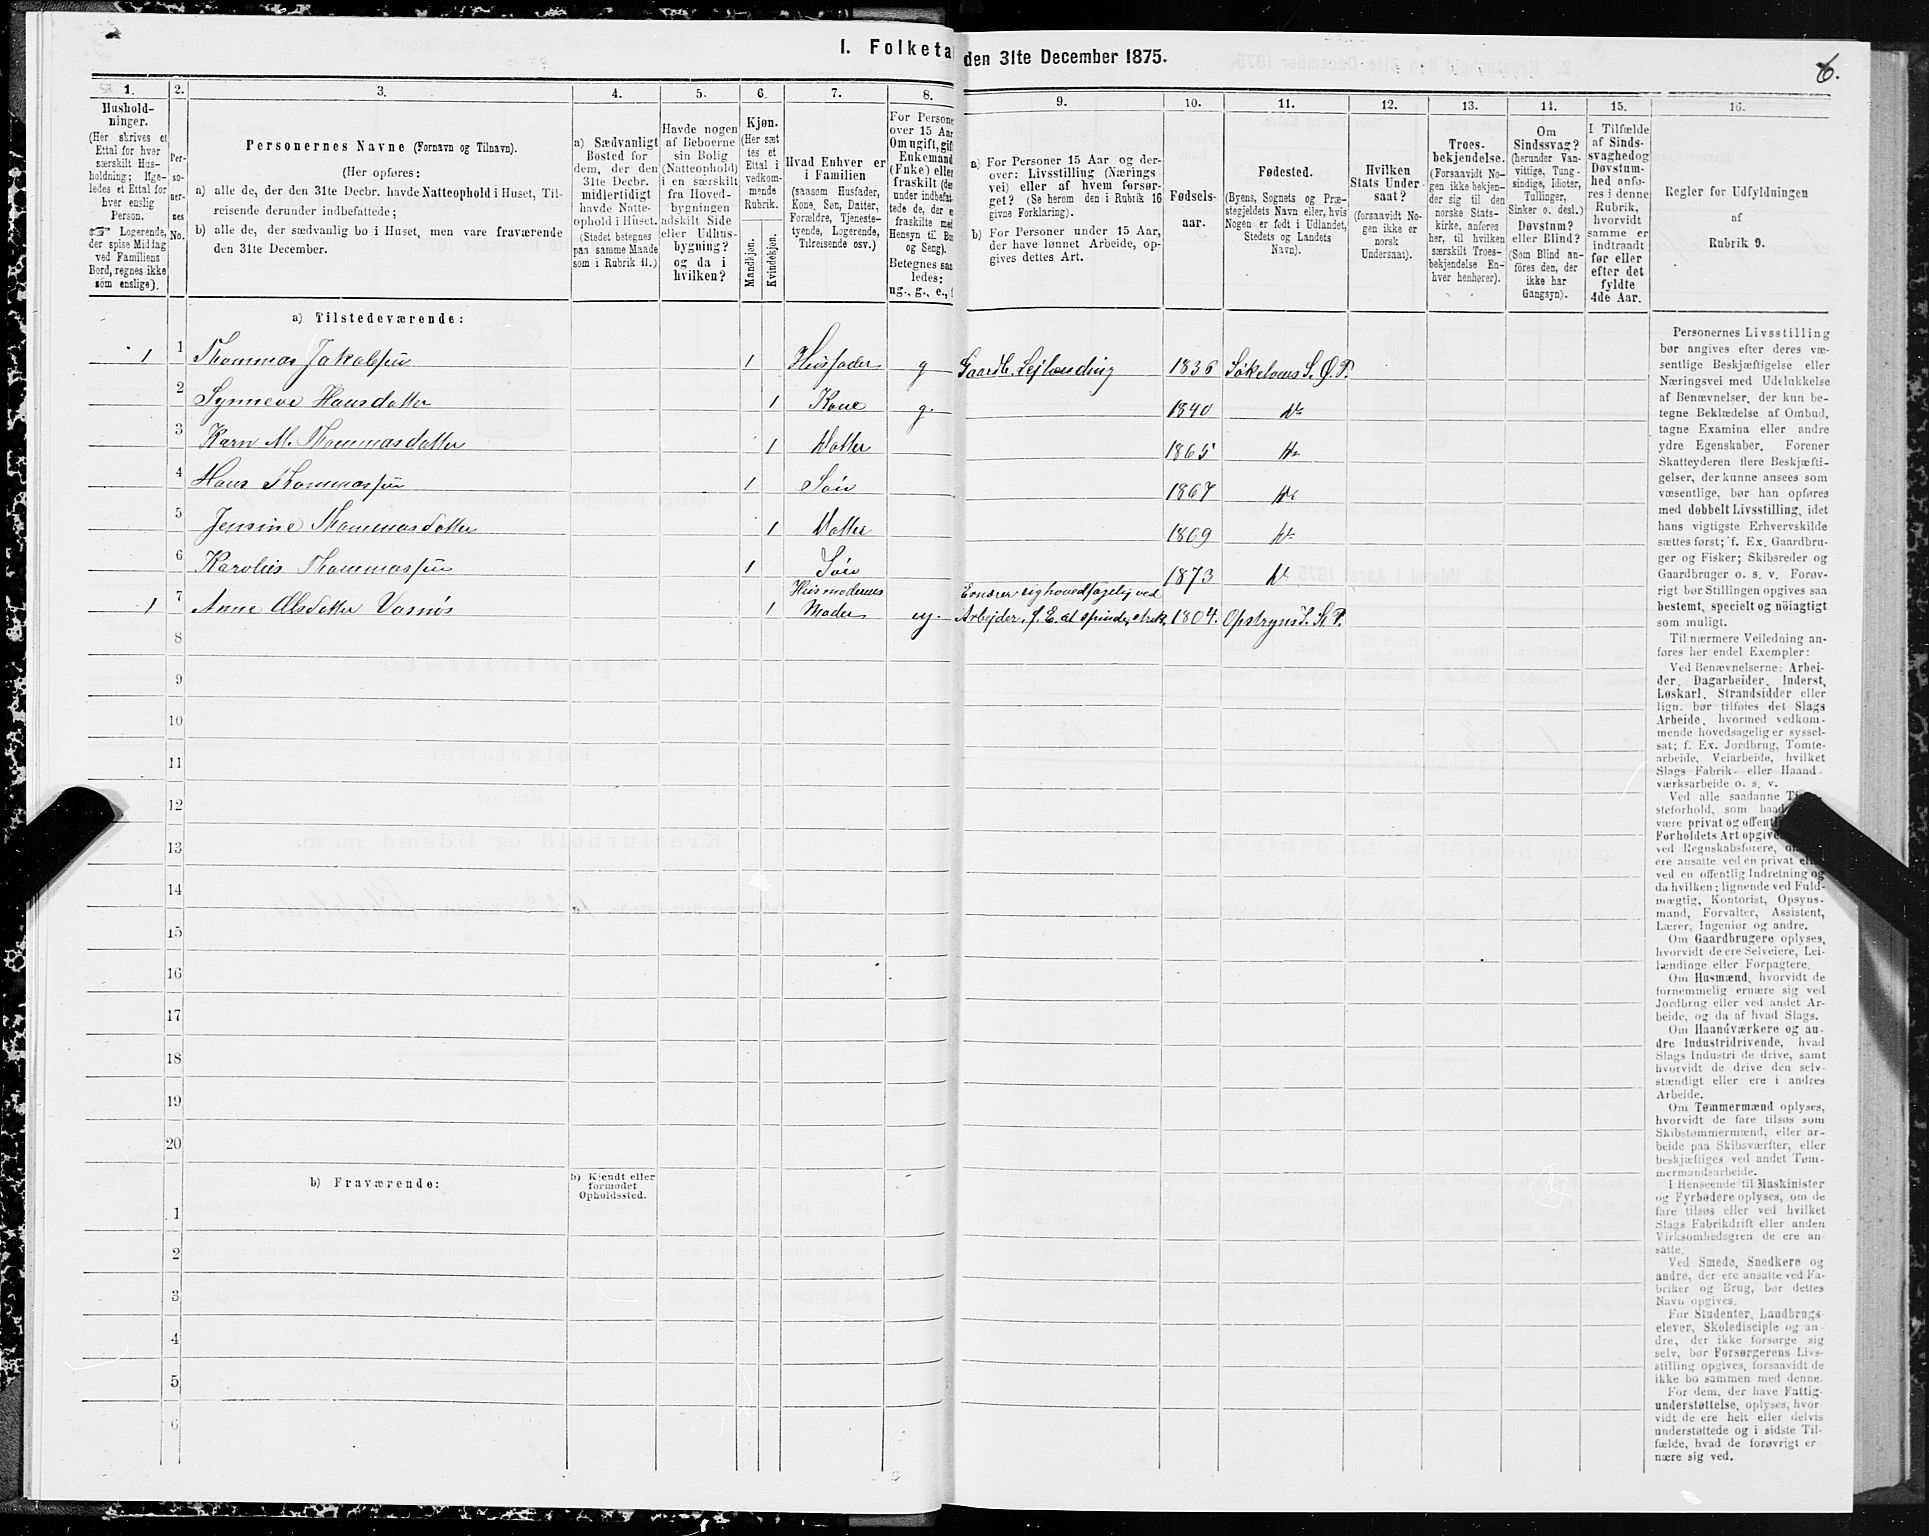 1. Folketa den 31te December 1875.
6.
1.
Hushold-
ninger.
(Her skrives et
Ettal for hver
særskilt Hus-
holdning; lige-
ledes et Ettal for
hver enslig
Person.
☞ Logerende,
der spise Middag
ved Familiens
Bord, regnes ikke
som enslige).
2.
Per-
so-
ner-
nes
No.
3.
Personernes Navne (Fornavn og Tilnavn).
(Her opføres:
a) alle de, der den 31te Decbr. havde Natteophold i Huset, Til-
reisende derunder indbefattede;
b) alle de, der sædvanlig bo i Huset, men vare fraværende
den 31te December.
4.
a) Sædvanligt
Bosted for
dem, der den
31te Decbr.
midlertidigt
havde Natte-
ophold i Huset.
(Stedet betegnes
paa samme Maade
som i Rubrik 11.)
5.
Havde nogen
af Beboerne
sin Bolig
(Natteophold)
i en særskilt
fra Hoved-
bygningen
adskilt Side
eller Udhus-
bygning?
og da i
hvilken?
6.
Kjøn.
(Her sæt
tes et
Ettal i
vedkom-
mende
Rubrik.
Mandkjøn.
Kvindekjøn.
7.
Hvad Enhver er
i Familien
(saasom Husfader,
Kone, Søn, Datter,
Forældre, Tjeneste-
tyende, Logerende,
Tilreisende osv.)
8.
For Persone
over 15 Aar
Om ugift, gift
Enkemand
(Enke) eller
fraskilt (der
under indbefat-
tede de, der e
fraskilte med
Hensyn til Bo
og Seng).
Betegnes saa
ledes:
ug., g., e., f
9.
a) For Personer 15 Aar og der-
over: Livsstilling (Nærings
vei) eller af hvem forsør-
get? (Se herom den i Rubrik 16
givne Forklaring).
b) For Personer under 15 Aar,
der have lønnet Arbeide, op-
gives dettes Art.
10.
Fødsels-
aar.
11.
Fødested.
(Byens, Sognets og Præ-
stegjeldets Navn eller, hvis
Nogen er født i Udlandet,
Stedets og Landets
Navn).
12.
Hvilken
Stats Under-
saat?
(forsaavidt No-
gen ikke er
norsk
Undersaat).
13.
Troes-
bekjendelse.
(Forsaavidt No-
gen ikke bekjen-
der sig til den
norske Stats-
kirke, anføres
her, til hvilken
særskilt Troes-
bekjendelse En-
hver henhører).
14.
Om
Sindssvag?
(herunder Van-
vittige, Tung-
sindige, Idioter,
Tullinger,
Sinker o. desl.)
Døvstum?
eller Blind?
(Som Blind an-
føres den, der
ikke har
Gangsyn).
15.
I Tilfælde
af Sinds-
svaghed og
Døvstum-
hed anfø-
res i denne
Rubrik,
hvorvidt
samme er
indtraadt
før eller
efter det
fyldte
4de Aar.
16.
Regler for Udfyldningen
af
Rubrik 9.
a) Tilstedeværende:
1 1 Thommas Jakobsen 1 Husfader g Gaardb. Lejlending 1836 Søkelvens S. Ø. P.
2 Synneve Hansdatter 1 Kone g. 1840 do
3 Karn M. Thommasdatter 1 Datter 1865 do
4 Hans Thommassen 1 Søn 1867 do
5 Jensine Thommasdatter 1 Datter 1869 do
6 Karolius Thommassen 1 Søn 1873 do
1 7 Anne Olsdatter Vasnøs 1 Husmoderens Moder ug. Ernærer sig hovedsagelig ved
Arbejder, f. E. at spinde, strik. 1804. Opstryns S. S. P.
8
9
10
11
12
13
14
15
16
17
18
19
20
b) Fraværende:
b) Kjendt eller
formodet
Opholdssted.
1
2
3
4
5
6
Personernes Livsstilling
bør angives efter deres væ-
sentlige Beskjæftigelse eller
Næringsvei med Udelukkelse
af Benævnelser, der kun be-
tegne Beklædelse af Ombud,
tagne Examina eller andre
ydre Egenskaber. Forener
Skatteyderen flere Beskjæfti-
gelser, der kunne ansees som
væsentlige, bør han opføres
med dobbelt Livsstilling, idet
hans vigtigste Erhvervskilde
sættes først; f. Ex. Gaardbru-
ger og Fisker; Skibsreder og
Gaardbruger o. s. v. Forøv-
rigt bør Stillingen opgives saa
bestemt, specielt og nøiagtigt
som muligt.
Til nærmere Veiledning an-
føres her endel Exempler:
Ved Benævnelserne: Arbei-
der, Dagarbeider, Inderst,
Løskarl, Strandsidder eller
lign. bør tilføies det Slags
Arbeide, hvormed vedkom-
mende hovedsagelig er syssel-
sat; f. Ex. Jordbrug, Tomte-
arbeide, Veiarbeide, hvilket
Slags Fabrik- eller Haand-
værksarbeide o. s. v.
Ved alle saadanne
steforhold, som
være privat og
Forholdets Art
ved Regnskabsførere,
ere ansatte ved en privat
ved en offentlig Indretning og
da hvilken; lignende ved Fuld-
mægtig, Kontorist, Opsyns-
mand, Forvalter, Assistent,
Lærer, Ingeniør og andre.
Om Gaardbrugere oplyses,
hvorvidt de ere Selveiere, Lei-
lændinge eller Forpagtere.
Om Husmænd, hvorvidt de
fornemmelig ernære sig ved
Jordbrug eller ved andet Ar-
beide, og da af hvad Slags.
Om Haandværkere og an-
dre Industridrivende, hvad
Slags Industri de drive, samt
hvorvidt de drive den selv-
stændigt eller ere i andres
Arbeide.
Om Tømmermænd oplyses,
hvorvidt de fare tilsøs som
Skibstømmermænd, eller ar-
beide paa Skibsværfter, eller
beskjæftiges ved andet Tøm-
mermandsarbeide.
I Henseende til Maskinister
og Fyrbødere oplyses, om de
fare tilsøs eller ved hvilket
Slags Fabrikdrift eller anden
Virksomhedsgren de ere an-
satte.
Ved Smede, Snedkere og
andre, der ere ansatte ved Fa-
briker og Brug, bør dettes
Navn opgives.
For Studenter, Landbrugs-
elever, Skoledisciple og an-
dre, der ikke forsørge sig
selv, bør Forsørgerens Livs-
stilling opgives, forsaavidt de
ikke bo sammen med denne.
For dem, der have Fattig-
understøttelse, oplyses, hvor-
vidt de ere helt eller delvis
understøttede og i sidste Til-
fælde, hvad de forøvrigt er
nære sig ved.